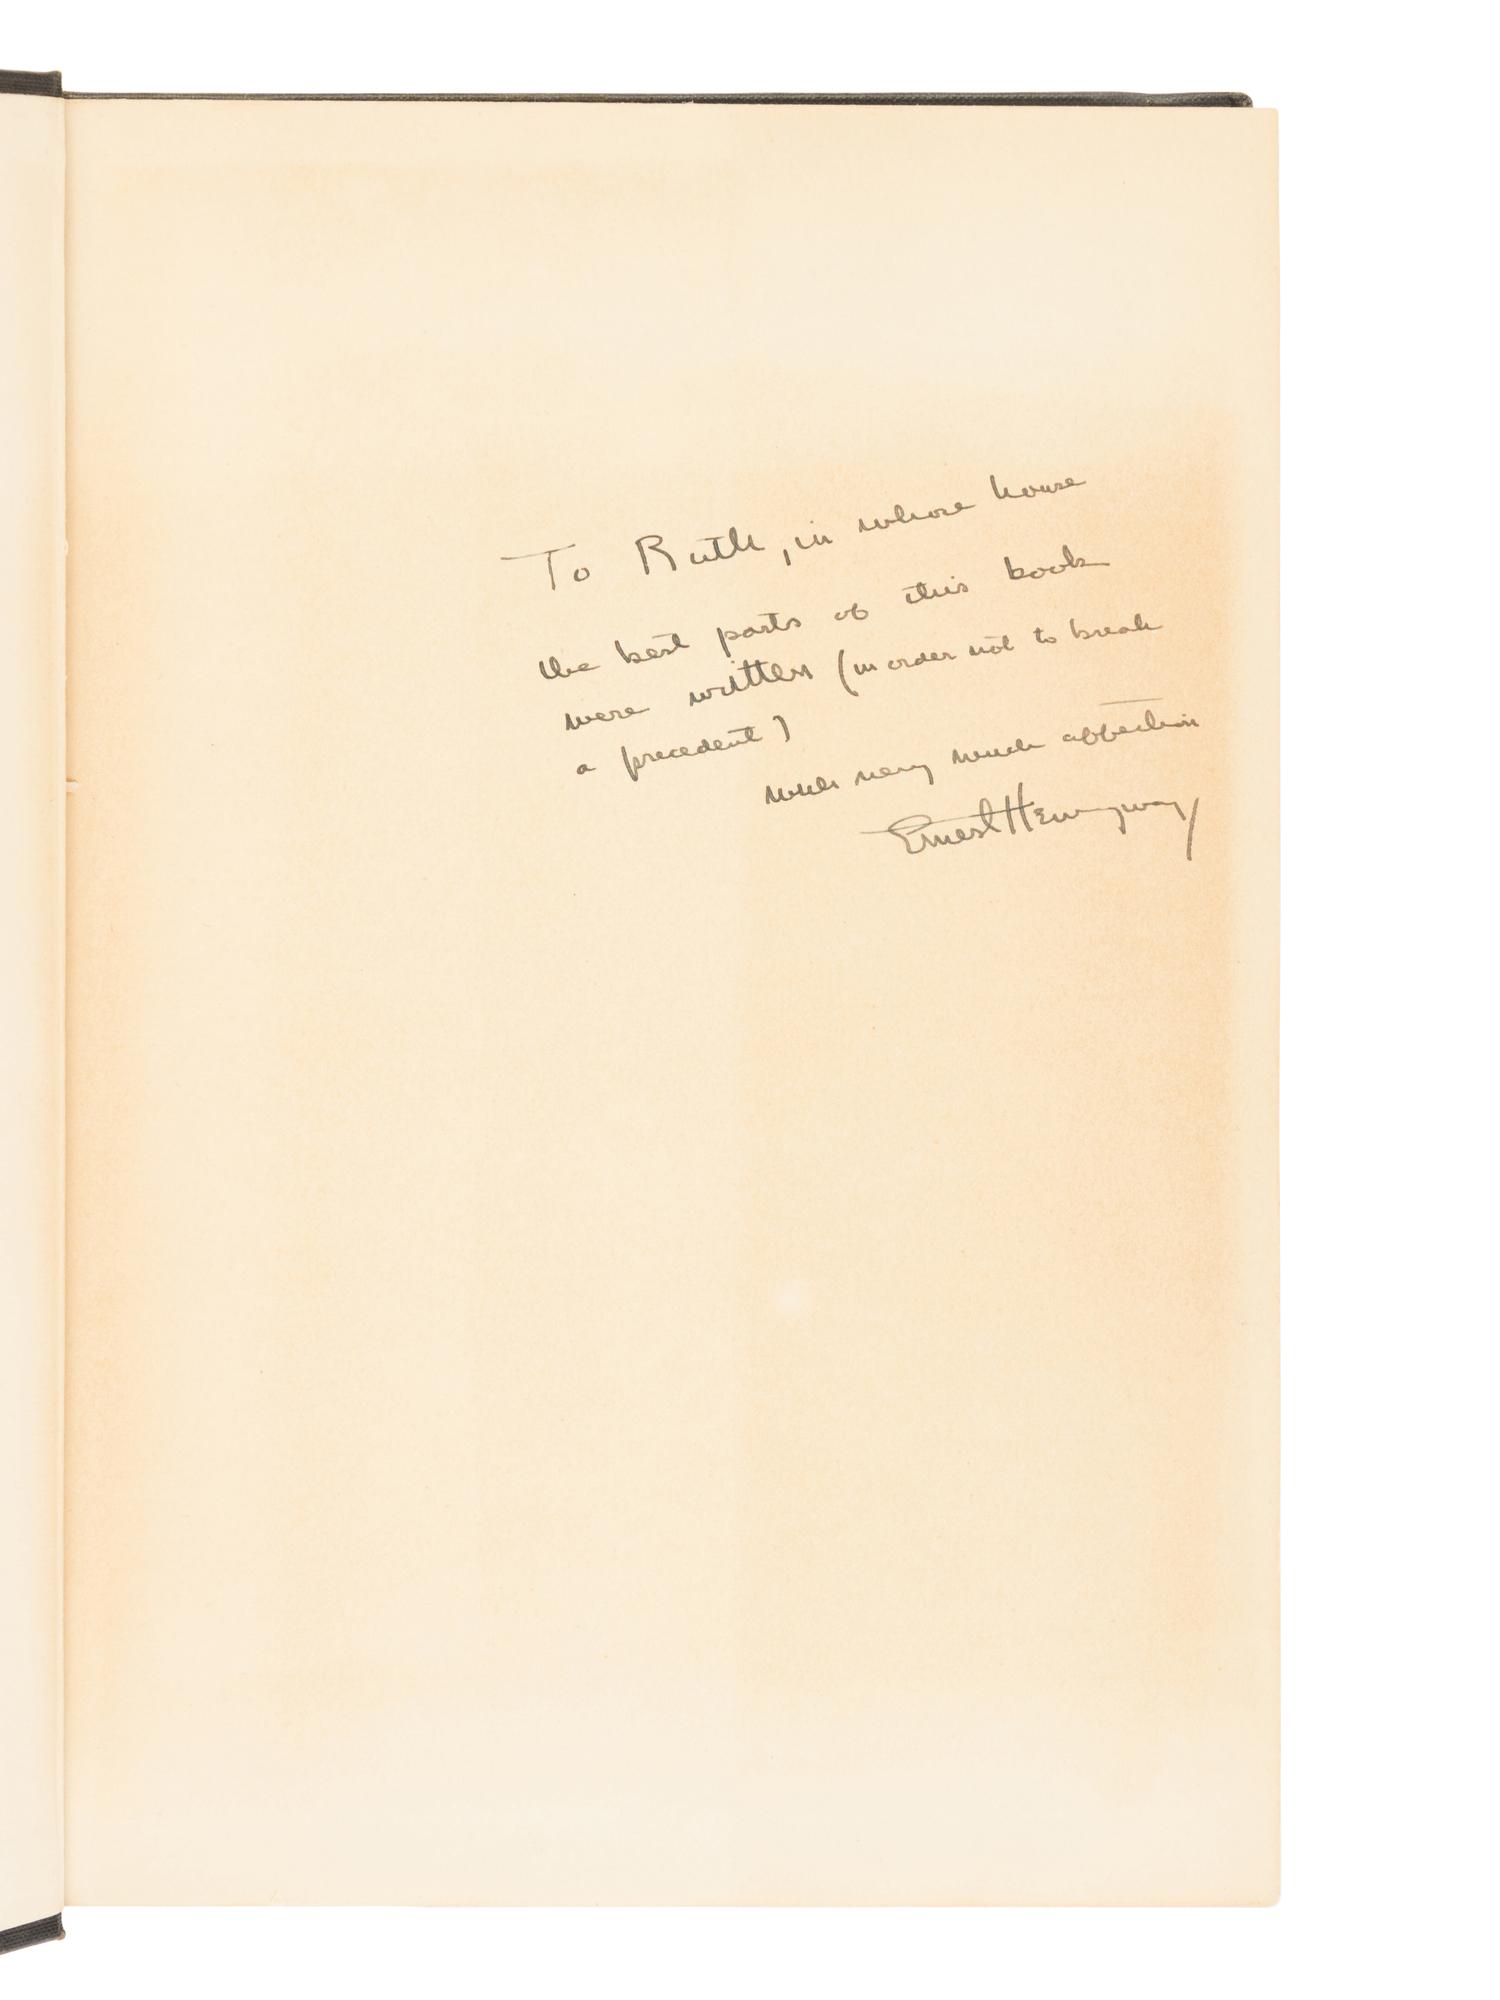 To Ruth, in whose house
the best parts of this book
were written (in order not to break
a precedent)
with very much affection
Ernest Hemingway